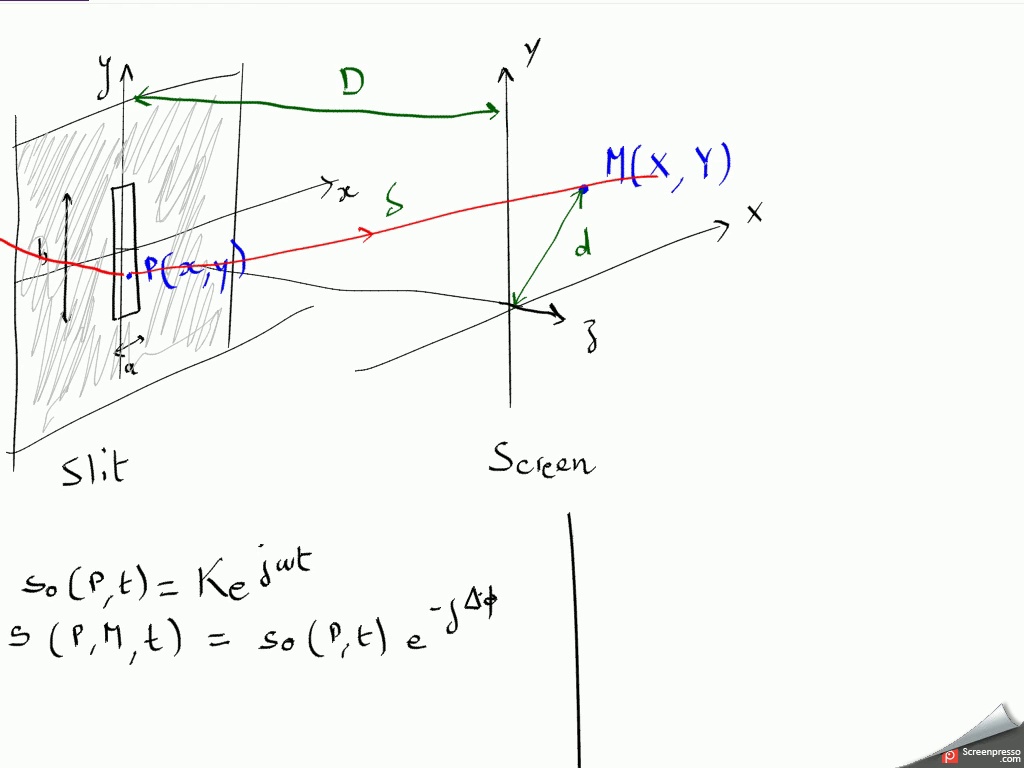 y
Y
D
M(X, Y)
x
S
X
b
P(x, y)
d
z
a
Slit
Screen
so(P,t) = Ke^jωt
s(P,M,t) = so(P,t) e^-jΔϕ
Screenpresso
.com